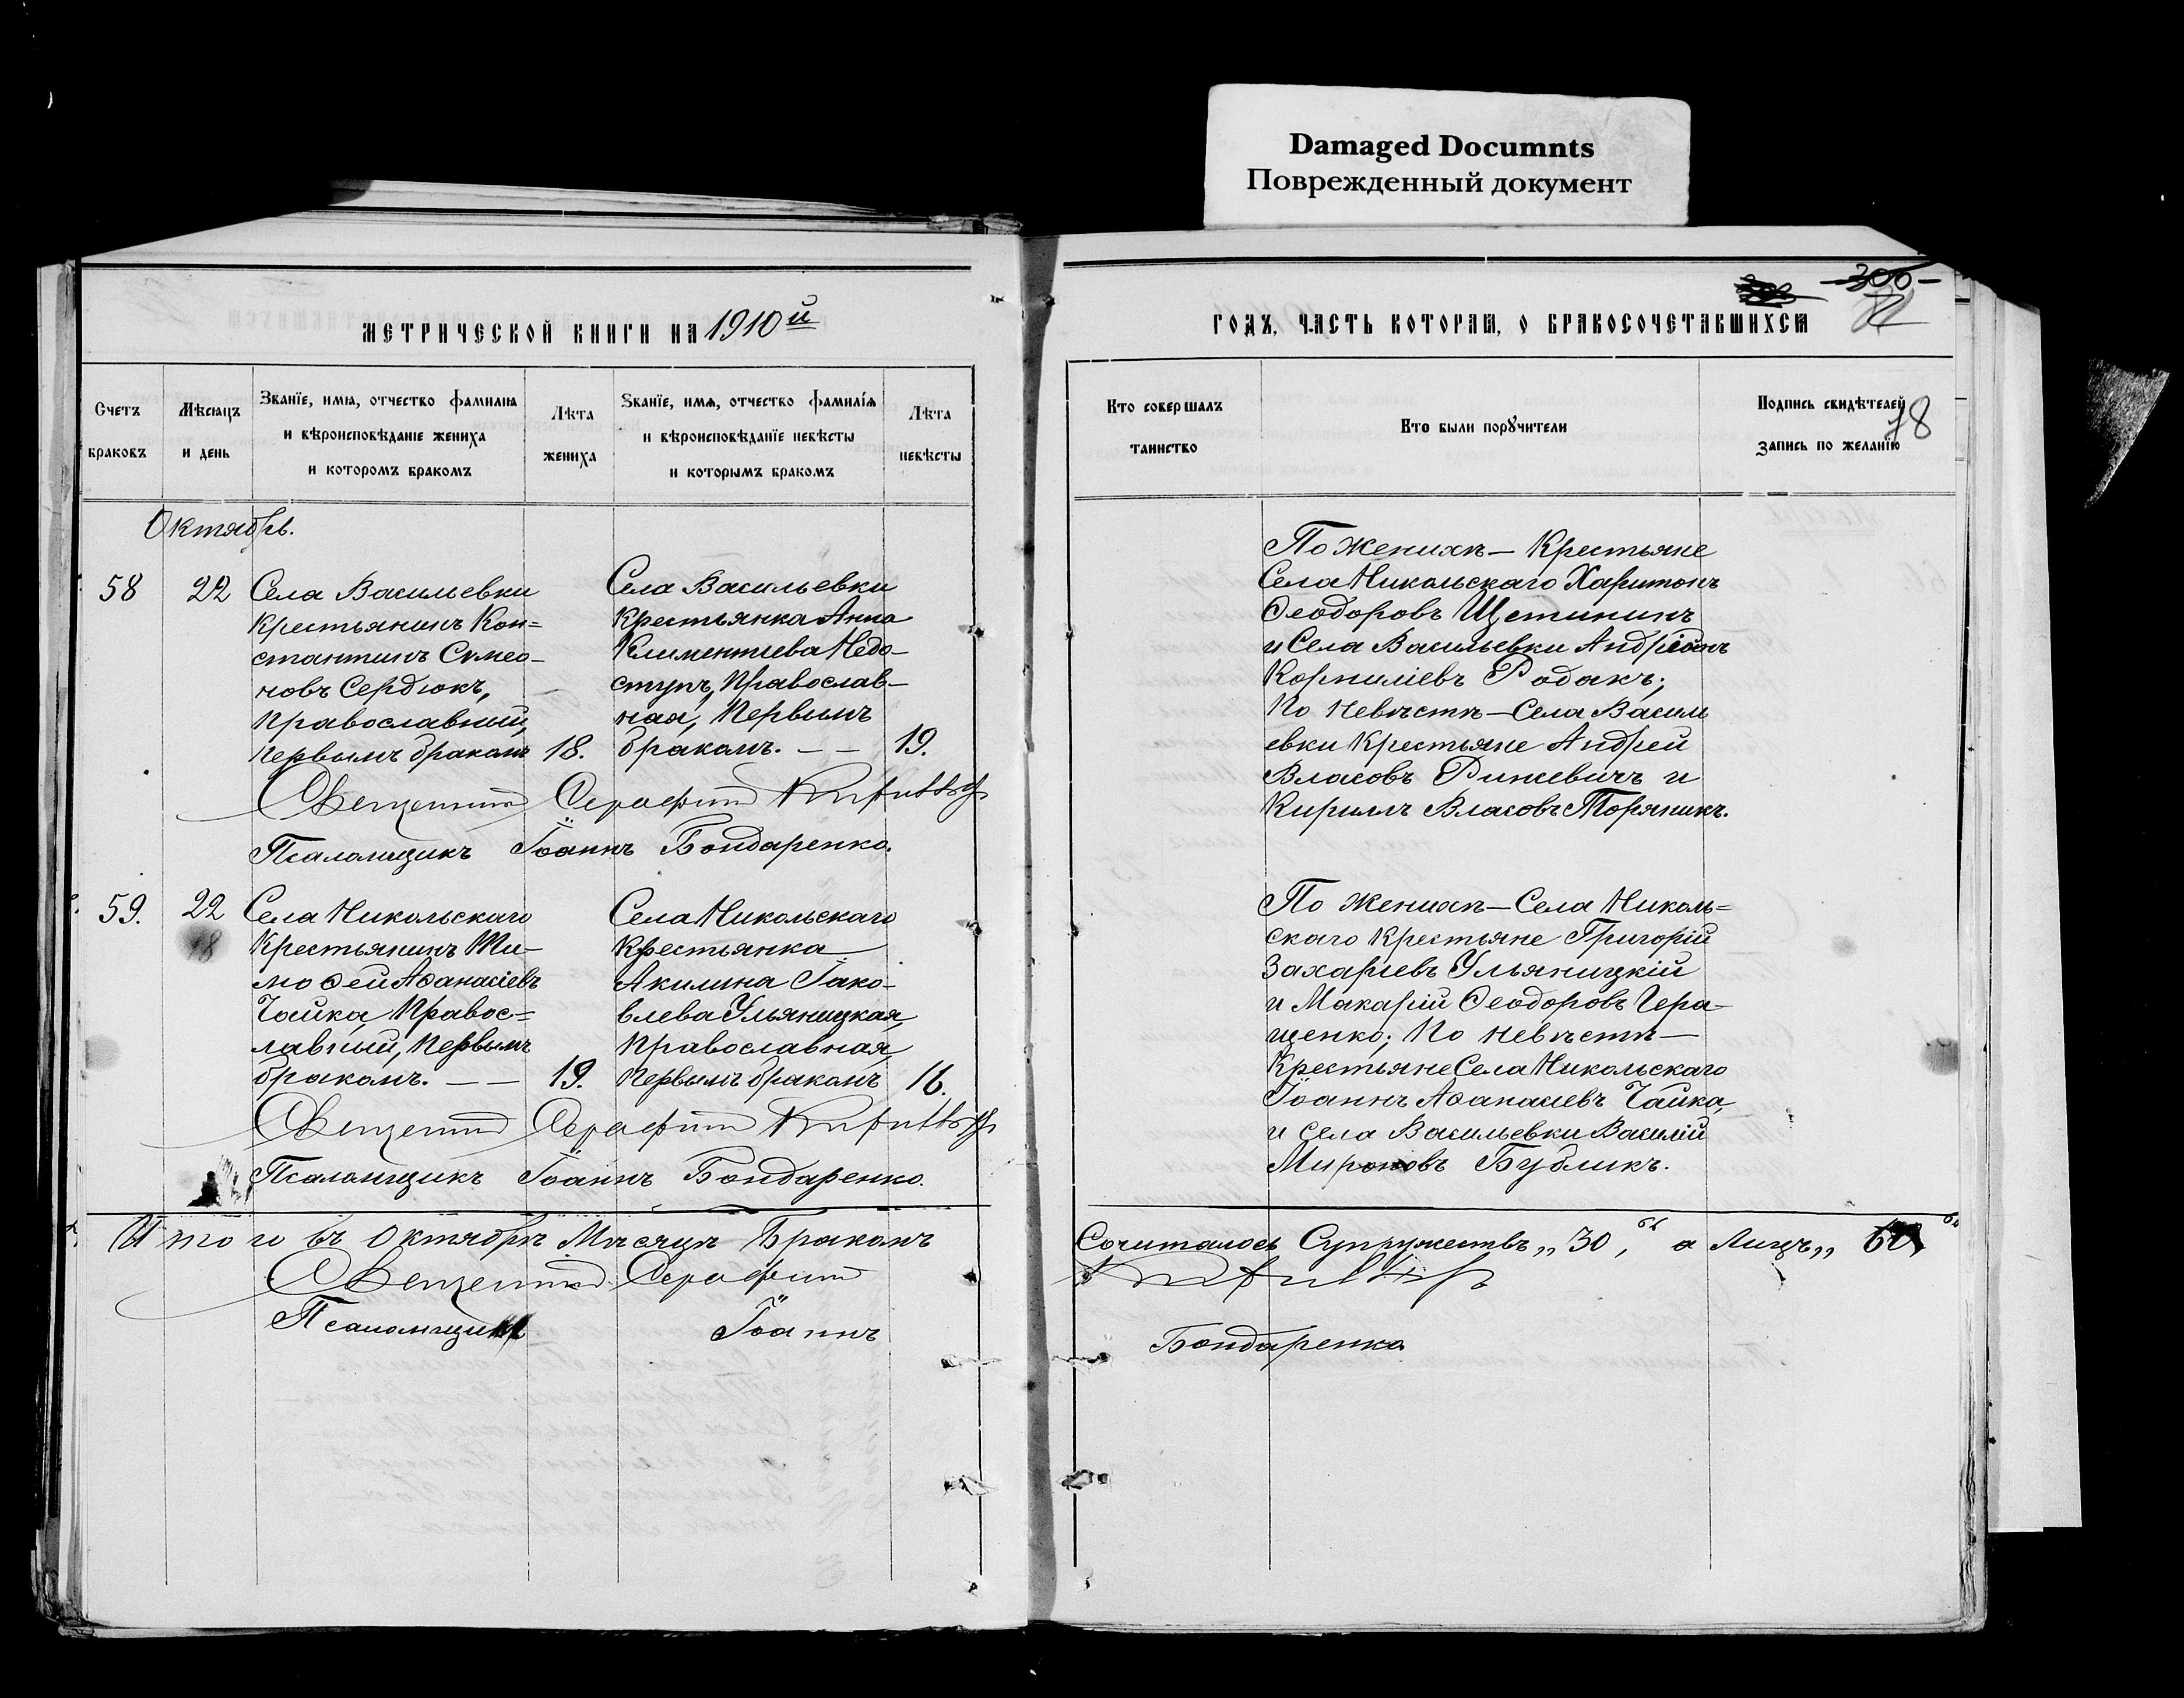 Damaged Documnts
Поврежденный документ
300
МЕТРИЧЕСКОЙ КНИГИ НА 1910й
ГОДЪ, ЧАСТЬ КОТОРАЯ, О БРАКОСОЧЕТАВШИХСЯ
Счетъ
браковъ
Мѣсяцъ
и день
Званїе, имя, отчество фамилия
и вѣроисповѣданїе жениха
и которомъ бракомъ
Лѣта
жениха
Званїе, имя, отчество фамилїя
и вѣроисповѣданїе невѣсты
и которымъ бракомъ
Лѣта
невѣсты
Кто совершалъ
таинство
Кто были поручители
Подпись свидѣтелей
запись по желанїю
78
Октябрь.
58
22
Села Васильевки
крестьянинъ Кон=
стантинъ Сѵмео-
новъ Сердюкъ,
православный,
первымъ бракомъ
18.
Села Васильевки
крестьянка Анна
Климентиева Недо-
ступъ, православ-
ная, первымъ
бракомъ. — —
19.
По женихѣ — крестьяне
Села Никольскаго Харитонъ
Ѳеодоровъ Щетининъ
и Села Васильевки Андріанъ
Корниліевъ Родакъ;
по невѣстѣ — Села Василь
евки крестьяне Андрей
Власовъ Рижевичъ и
Кириллъ Власовъ Торяникъ.
Священник Серафим
Псаломщикъ Іоаннъ Бондаренко.
59.
22
18
Села Никольскаго
крестьянинъ Ти-
моѳей Аѳанасіевъ
Чайка, правос=
лавный, первымъ
бракомъ. — —
19.
Села Никольскаго
крестьянка
Акилина Іако-
влева Ульяницкая,
православная,
первымъ бракомъ
16.
По женихѣ — Села Николь=
скаго крестьяне Григорій
Захаріевъ Ульяницкій
и Макарій Ѳеодоровъ Гера-
щенко; по невѣстѣ —
крестьяне Села Никольскаго
Іоаннъ Аѳанасіевъ Чайка,
и села Васильевки Василій
Мироновъ Бубликъ.
Священник Серафим
Псаломщикъ Іоаннъ Бондаренко.
Итого въ Октябрѣ мѣсяцѣ бракомъ
Сочиталось Супружествъ „30, а лицъ „ 60
Священник Серафим
Псаломщикъ Іоаннъ
Бондаренко